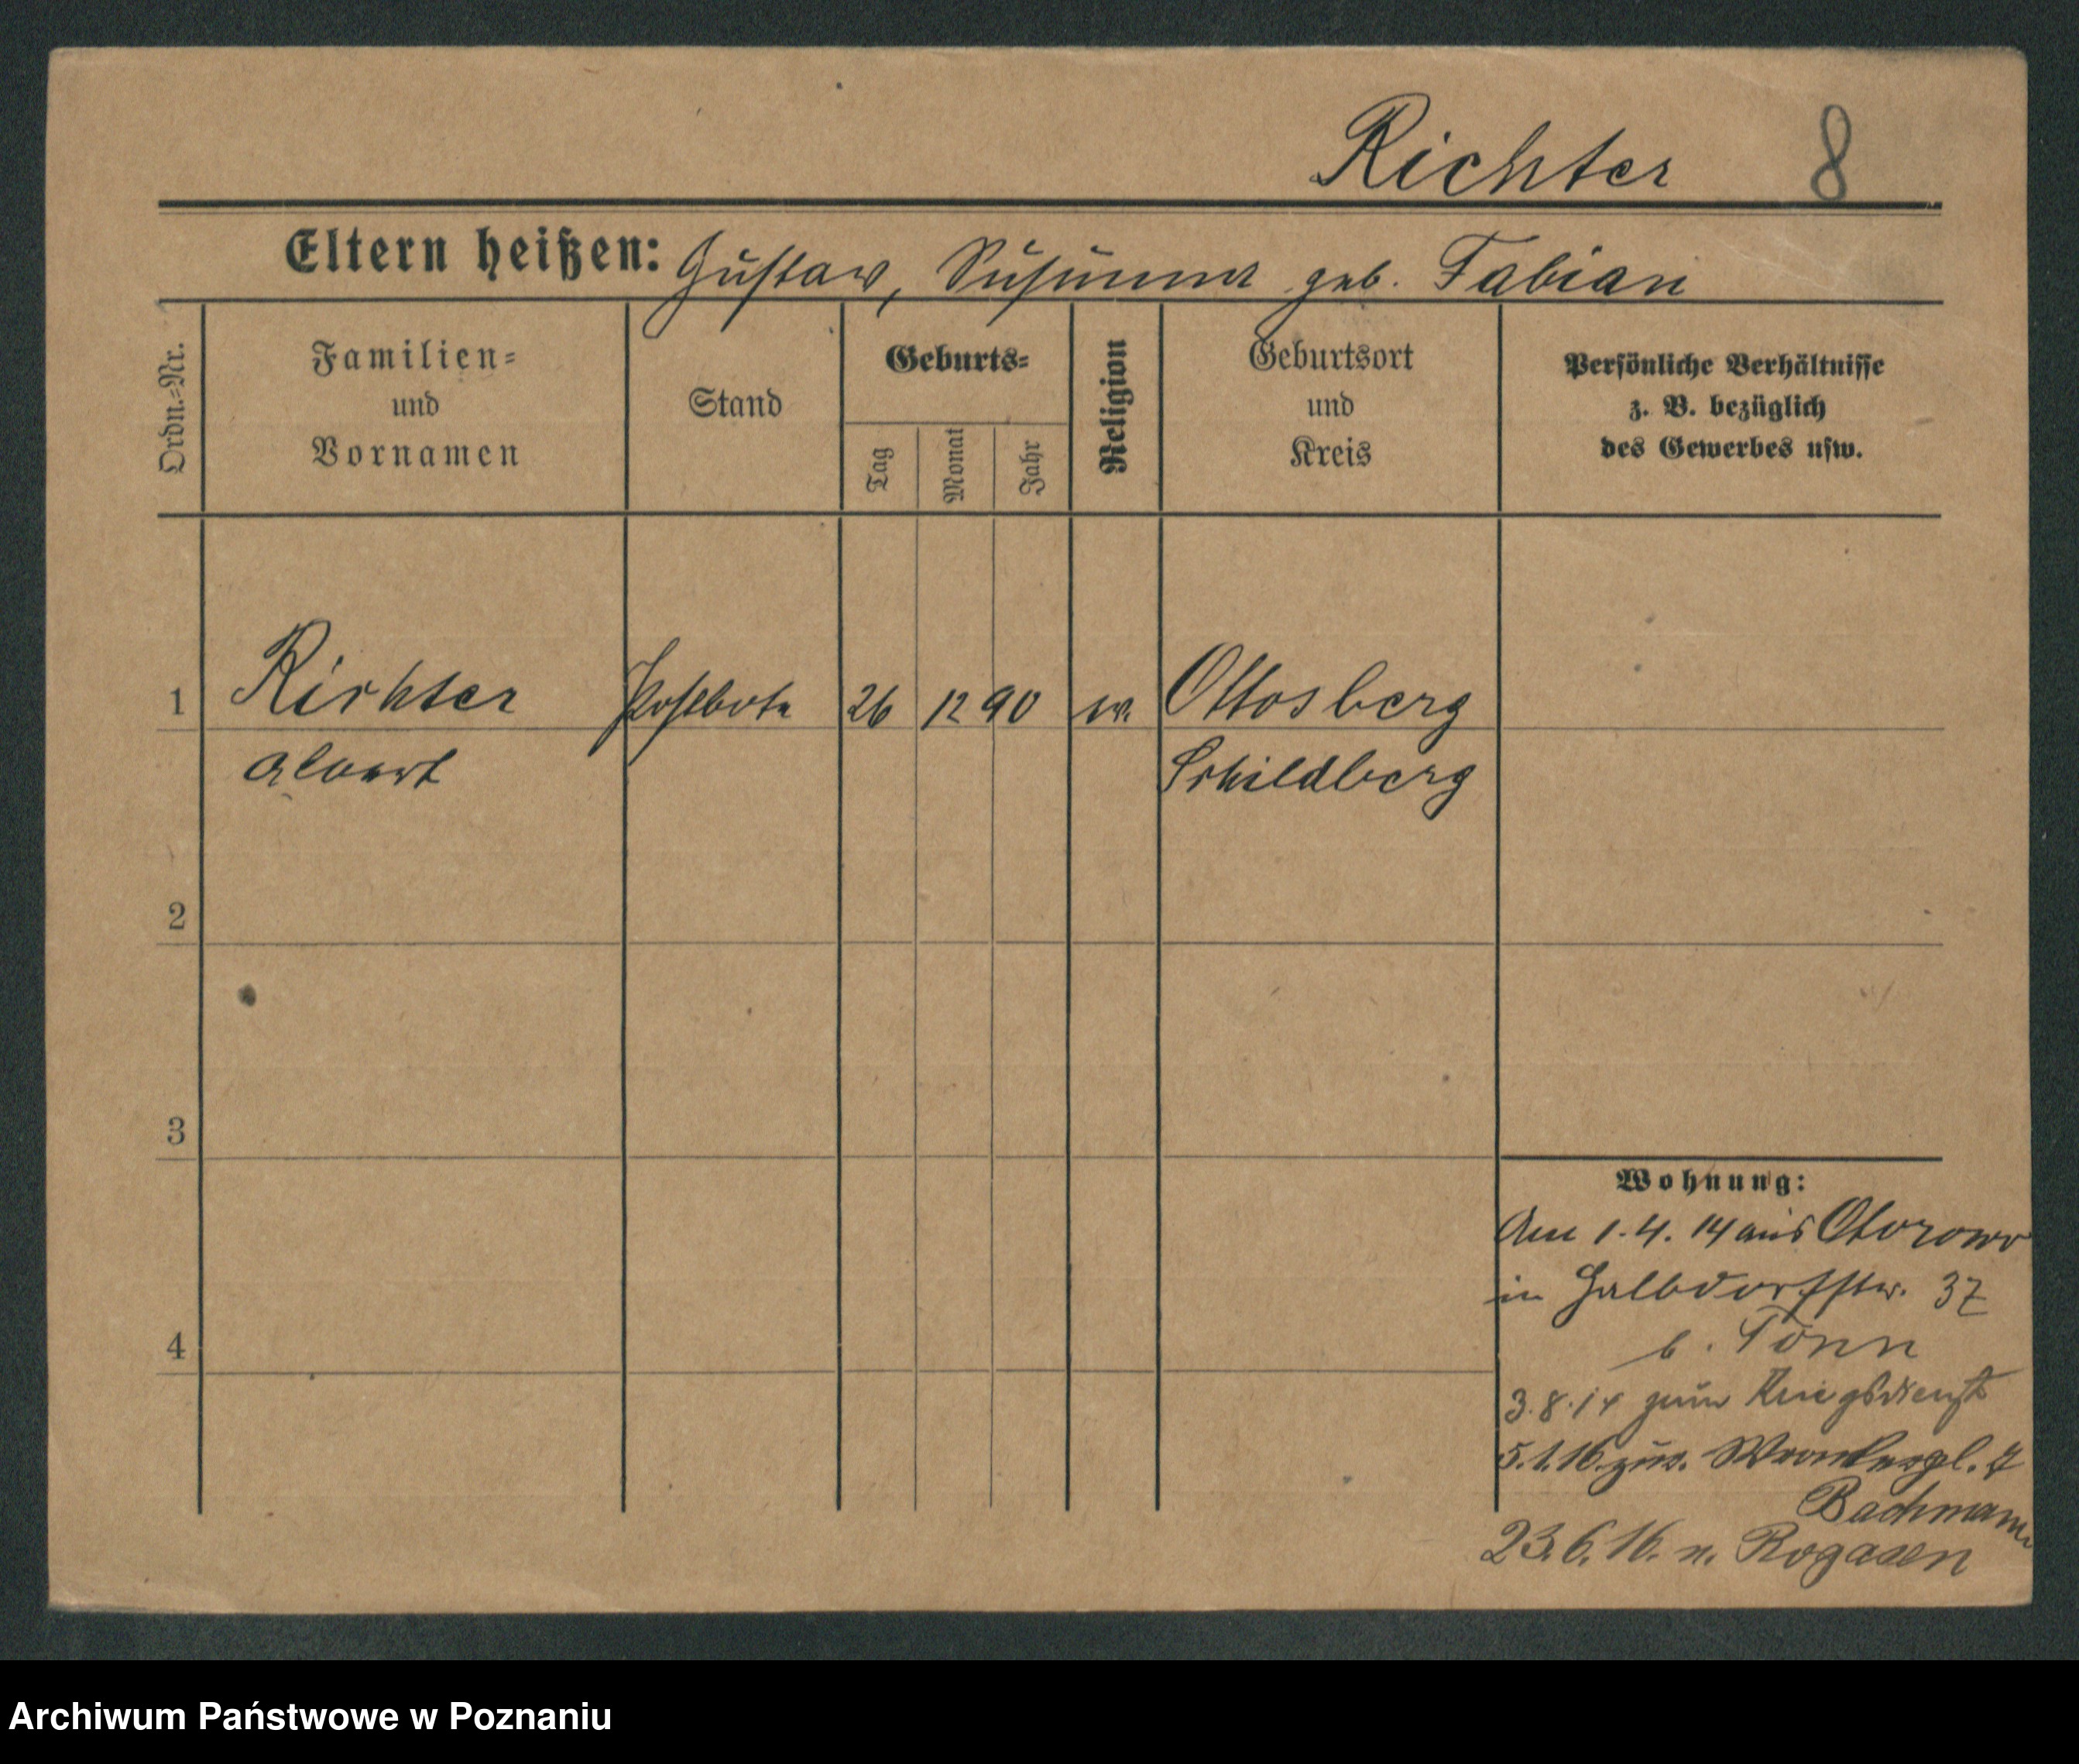 Richter 8
Eltern heißen: Gustav, Susanna geb. Fabian
Ordn.=Nr.
Familien=
und
Vornamen
Stand
Geburts=
Tag
Monat
Jahr
Religion
Geburtsort
und
Kreis
Persönliche Verhältnisse
z. B. bezüglich
des Gewerbes usw.
1 Richter Postbote 26 12 90 ev. Ottosberg
Albert Schildberg
2
3
4
Wohnung:
Am 1.4.14 aus Otorowo
in Halbdorfstr. 37
b. Tonn
3.8.14 zum Kriegsdienst
5.1.16 zur. Wronkerpl.
Bachmann
23.6.16. n. Rogasen
Archiwum Państwowe w Poznaniu